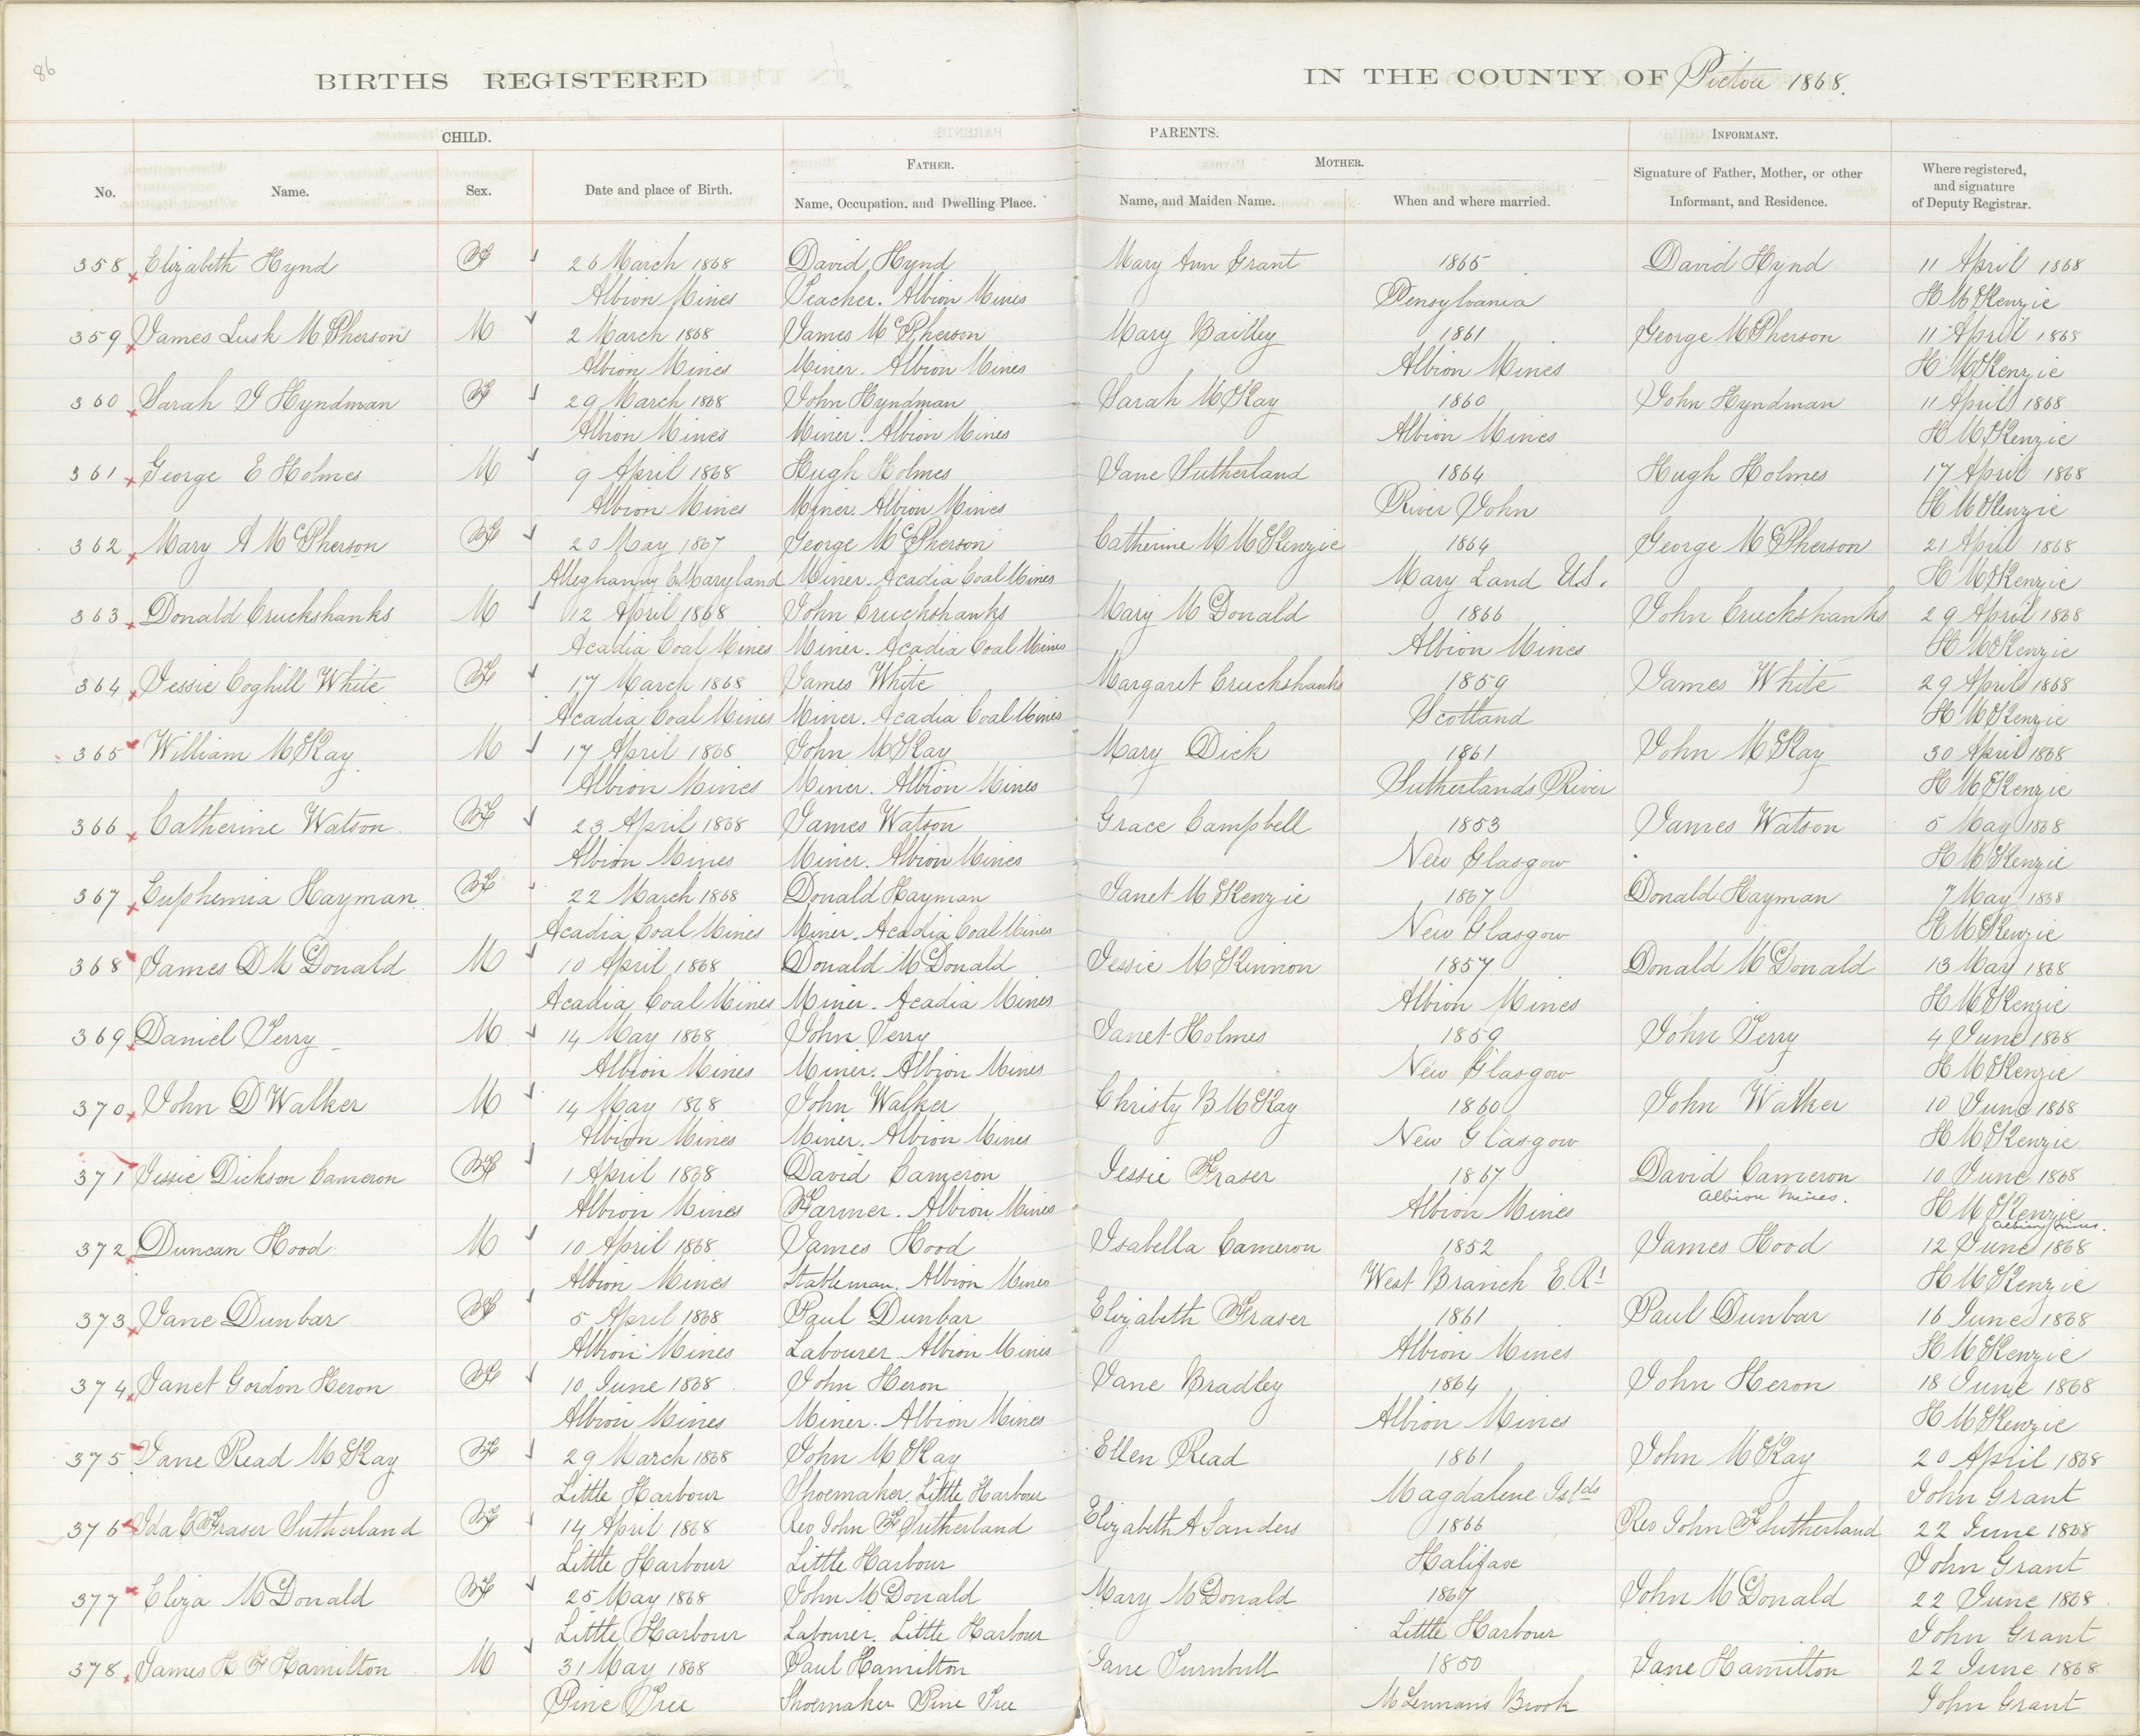 86
BIRTHS REGISTERED IN THE COUNTY OF Pictou 1868.
CHILD. PARENTS. INFORMANT.
FATHER. MOTHER.
No. Name. Sex. Date and place of Birth. Name, Occupation, and Dwelling Place. Name, and Maiden Name. When and where married. Signature of Father, Mother, or other Informant, and Residence. Where registered, and signature of Deputy Registrar.
358 Elizabeth Hynd F 26 March 1868 David Hynd Mary Ann Grant 1865 David Hynd 11 April 1868
Albion Mines Teacher. Albion Mines Pensylvania H McKenzie
359 James Lusk McPherson M 2 March 1868 James McPherson Mary Bailley 1861 George McPherson 11 April 1868
Albion Mines Miner. Albion Mines Albion Mines H McKenzie
360 Sarah J Hyndman F 29 March 1868 John Hyndman Sarah McKay 1860 John Hyndman 11 April 1868
Albion Mines Miner. Albion Mines Albion Mines H McKenzie
361 George E Holmes M 9 April 1868 Hugh Holmes Jane Sutherland 1864 Hugh Holmes 17 April 1868
Albion Mines Miner. Albion Mines River John H McKenzie
362 Mary A McPherson F 20 May 1867 George McPherson Catherine M McKenzie 1864 George McPherson 21 April 1868
Alleghanny C Maryland Miner. Acadia Coal Mines Mary Land U.S. H McKenzie
363 Donald Cruckshanks M 12 April 1868 John Cruckshanks Mary McDonald 1866 John Cruckshanks 29 April 1868
Acadia Coal Mines Miner. Acadia Coal Mines Albion Mines H McKenzie
364 Jessie Coghill White F 17 March 1868 James White Margaret Cruckshanks 1859 James White 29 April 1868
Acadia Coal Mines Miner. Acadia Coal Mines Scotland H McKenzie
365 William McKay M 17 April 1868 John McKay Mary Dick 1861 John McKay 30 April 1868
Albion Mines Miner. Albion Mines Sutherlands River H McKenzie
366 Catherine Watson F 23 April 1868 James Watson Grace Campbell 1853 James Watson 5 May 1868
Albion Mines Miner. Albion Mines New Glasgow H McKenzie
367 Euphemia Hayman F 22 March 1868 Donald Hayman Janet McKenzie 1867 Donald Hayman 7 May 1868
Acadia Coal Mines Miner. Acadia Coal Mines New Glasgow H McKenzie
368 James D McDonald M 10 April 1868 Donald McDonald Jessie McKinnon 1857 Donald McDonald 13 May 1868
Acadia Coal Mines Miner. Acadia Mines Albion Mines H McKenzie
369 Daniel Terry M 14 May 1868 John Terry Janet Holmes 1859 John Terry 4 June 1868
Albion Mines Miner. Albion Mines New Glasgow H McKenzie
370 John D Walker M 14 May 1868 John Walker Christy B McKay 1860 John Walker 10 June 1868
Albion Mines Miner. Albion Mines New Glasgow H McKenzie
371 Jessie Dickson Cameron F 1 April 1868 David Cameron Jessie Fraser 1867 David Cameron 10 June 1868
Albion Mines Farmer. Albion Mines Albion Mines Albion Mines. H McKenzie
Albion Mines.
372 Duncan Hood M 10 April 1868 James Hood Isabella Cameron 1852 James Hood 12 June 1868
Albion Mines Stableman. Albion Mines West Branch E. Rr H McKenzie
373 Jane Dunbar F 5 April 1868 Paul Dunbar Elizabeth Fraser 1861 Paul Dunbar 16 June 1868
Albion Mines Labourer Albion Mines Albion Mines H McKenzie
374 Janet Gordon Heron F 10 June 1868 John Heron Jane Bradley 1864 John Heron 18 June 1868
Albion Mines Miner. Albion Mines Albion Mines H McKenzie
375 Jane Read McKay F 29 March 1868 John McKay Ellen Read 1861 John McKay 20 April 1868
Little Harbour Shoemaker. Little Harbour Magdalene Islds John Grant
376 Ida C Fraser Sutherland F 14 April 1868 Rev John F Sutherland Elizabeth A Sanders 1866 Rev John F Sutherland 22 June 1868
Little Harbour Little Harbour Halifax John Grant
377 Eliza McDonald F 25 May 1868 John McDonald Mary McDonald 1867 John McDonald 22 June 1868
Little Harbour Labourer. Little Harbour Little Harbour John Grant
378 James H F Hamilton M 31 May 1868 Paul Hamilton Jane Turnbull 1850 Jane Hamilton 22 June 1868
Pine Tree Shoemaker Pine Tree McLennans Brook John Grant